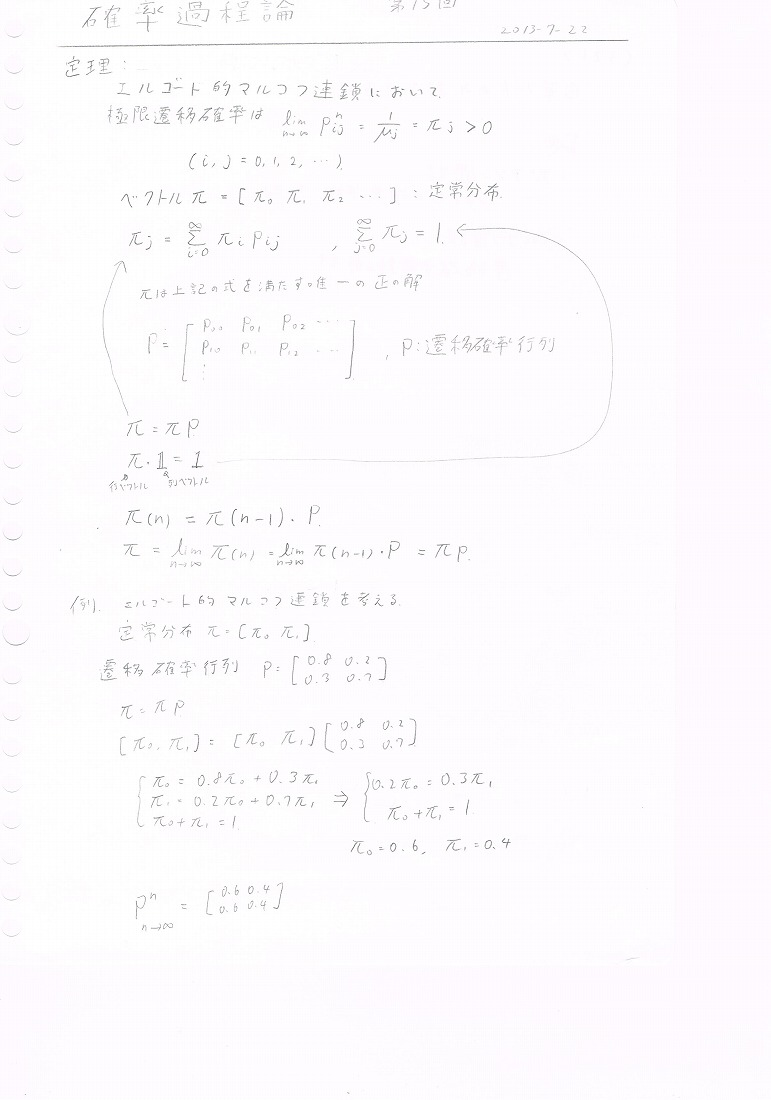 確率過程論 第13回
2013-7-22
定理:
エルゴート的マルコフ連鎖において
極限遷移確率は lim n→∞ Pij^n = 1/μj = πj > 0
(i, j = 0, 1, 2, ⋯)
ベクトル π = [π0 π1 π2 ⋯] : 定常分布
πj = ∑_{i=0}^{∞} πi Pij , ∑_{j=0}^{∞} πj = 1.
πは上記の式を満たす唯一の正の解
P = [P00 P01 P02 ⋯
P10 P11 P12 ⋯
⋮ ] , P:遷移確率行列
π = πP
π・𝟙 = 1
行ベクトル 列ベクトル
π(n) = π(n-1)・P.
π = lim n→∞ π(n) = lim n→∞ π(n-1)・P = πP.
例). エルゴート的マルコフ連鎖を考える.
定常分布 π = [π0 π1]
遷移確率行列 P = [0.8 0.2
0.3 0.7]
π = πP
[π0. π1] = [π0 π1] [0.8 0.2
0.3 0.7]
{ π0 = 0.8π0 + 0.3π1 ⇒ { 0.2π0 = 0.3π1
π1 = 0.2π0 + 0.7π1
π0 + π1 = 1. π0 + π1 = 1
π0 = 0.6, π1 = 0.4
P^n n→∞ = [0.6 0.4
0.6 0.4]